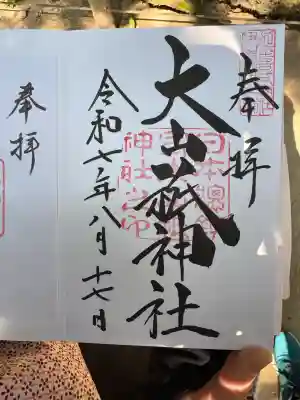 奉拝
大山祇神社
日本總鎮
神社之印
令和七年八月十七日
奉拝